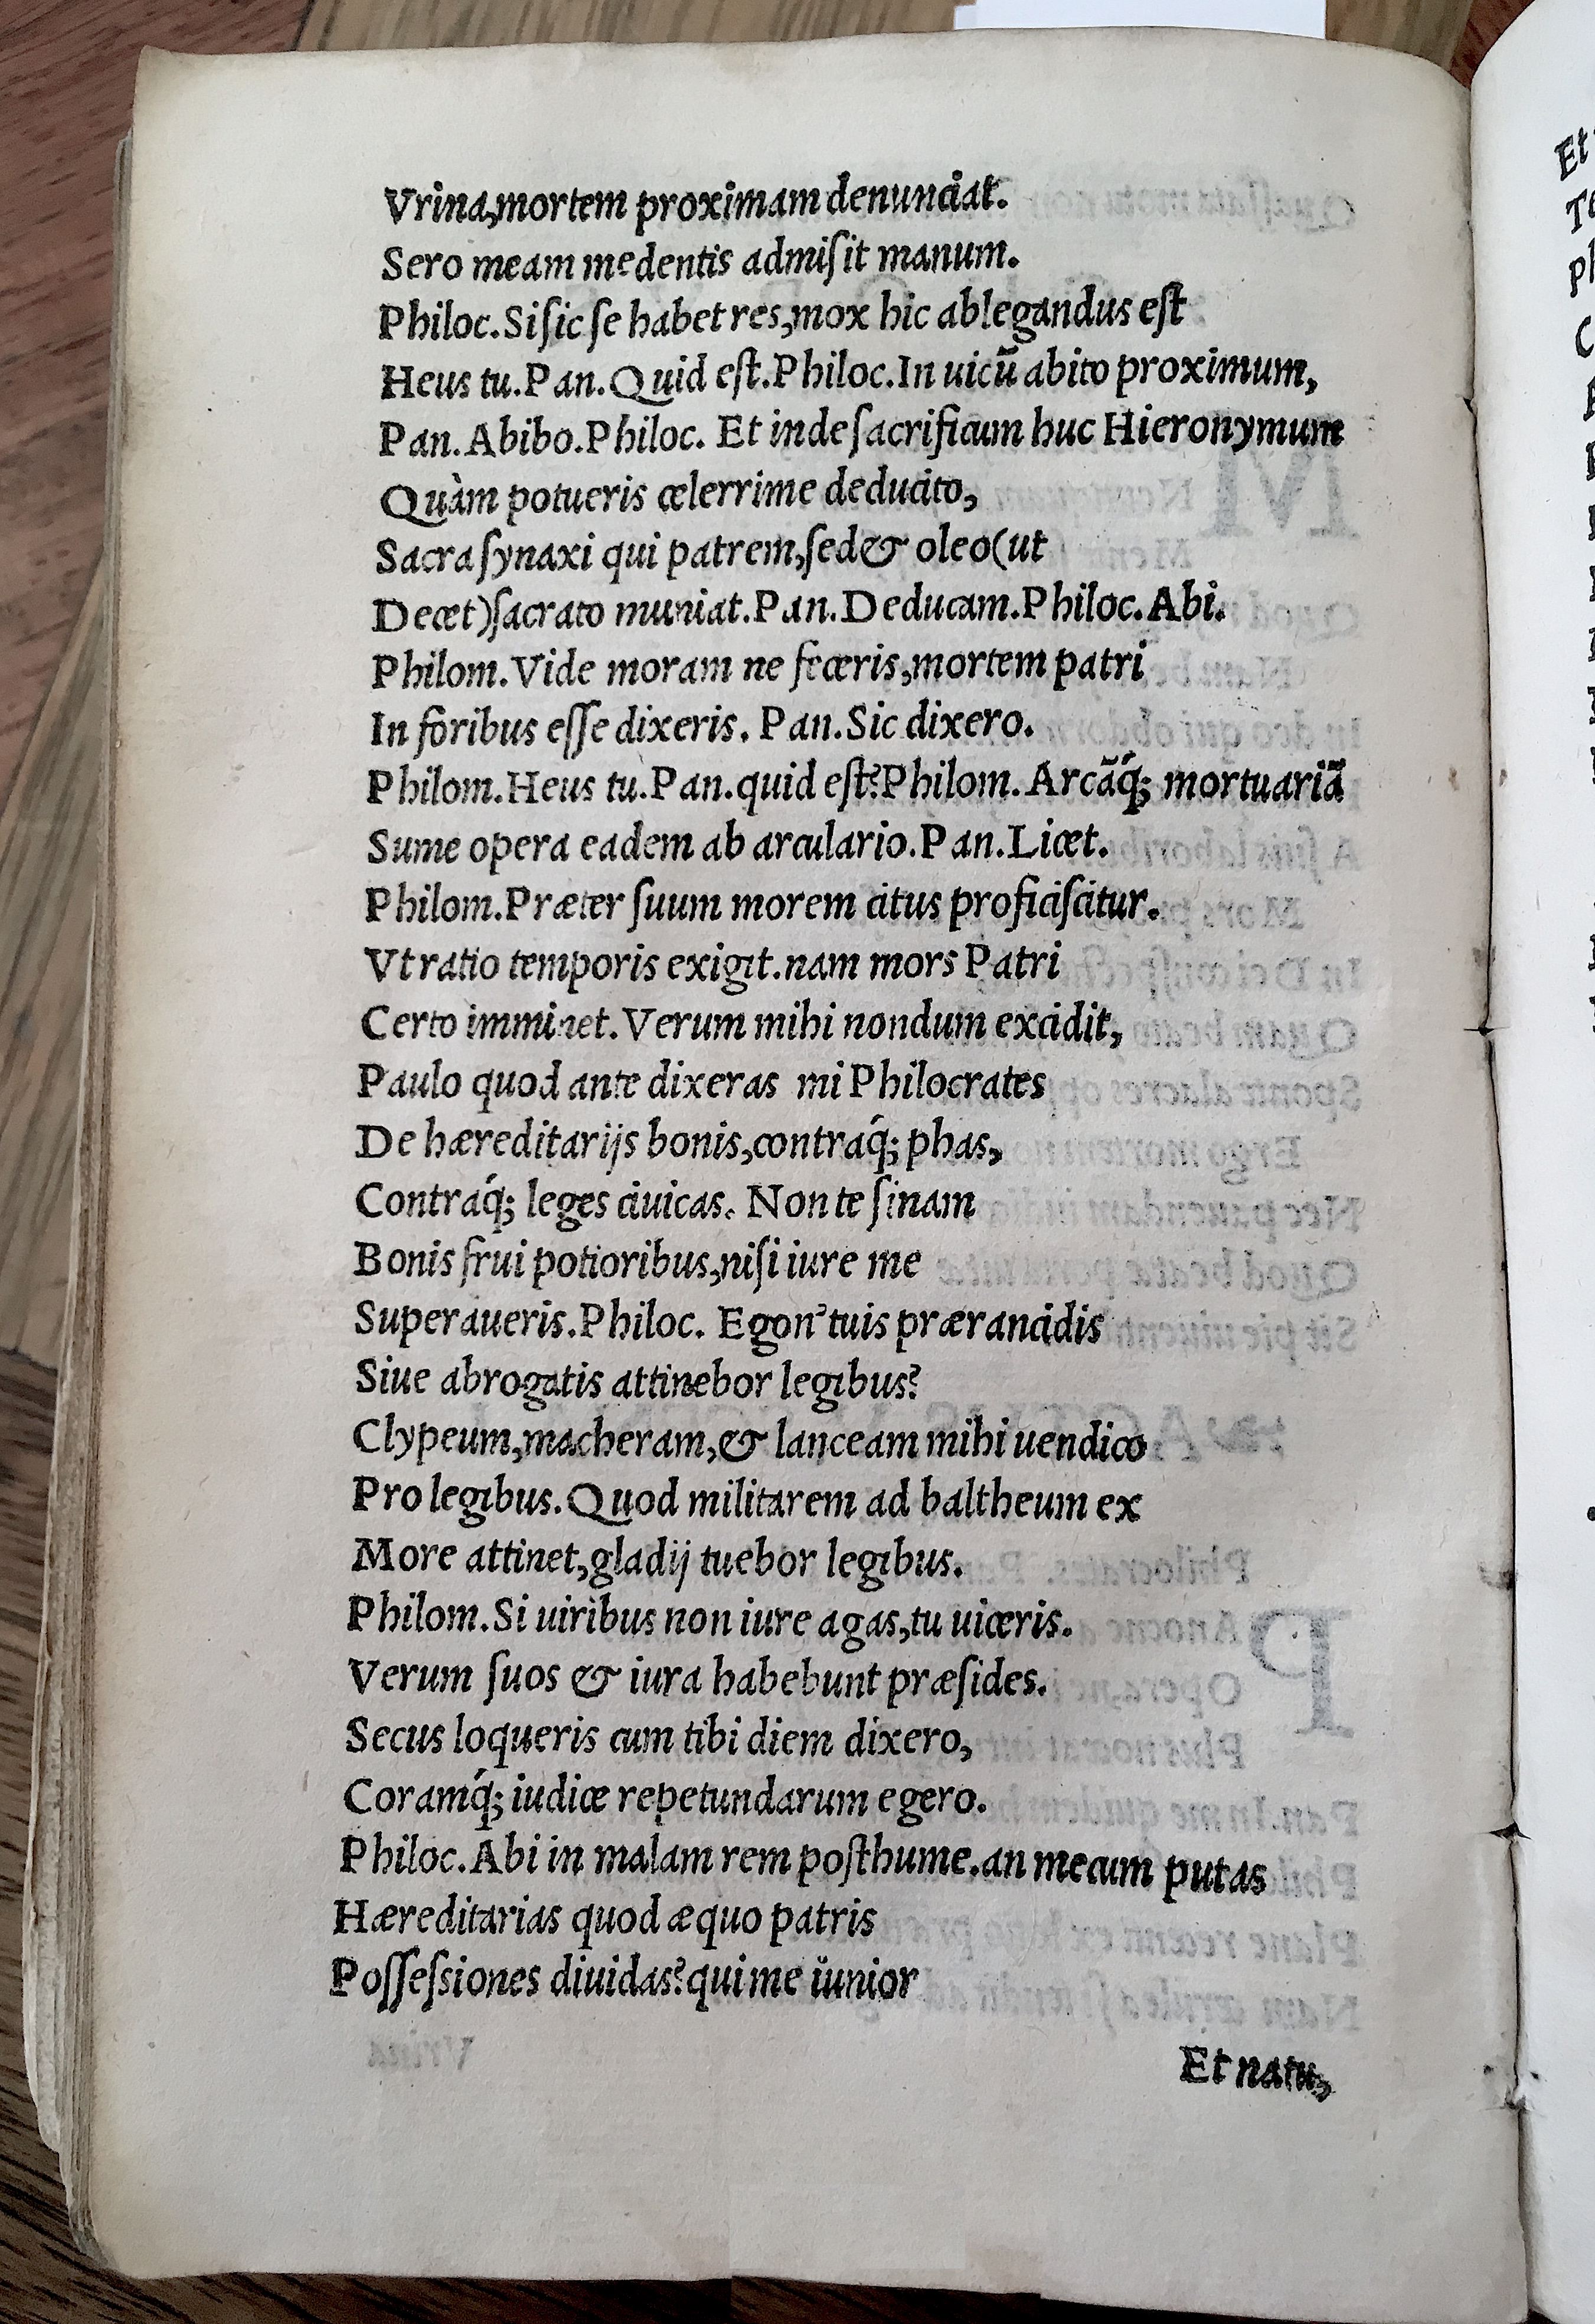 Vrina,mortem proximam denunciat.
Sero meam medentis admiſit manum.
Philoc.Si ſic ſe habet res,mox hic ablegandus eſt
Heus tu.Pan.Quid eſt.Philoc.In uicū abito proximum,
Pan.Abibo.Philoc. Et inde ſacrificum huc Hieronymum
Quàm potueris celerrime deducito,
Sacra ſynaxi qui patrem,ſed & oleo(ut
Decet)ſacrato muniat.Pan.Deducam.Philoc.Abi.
Philom.Vide moram ne feceris,mortem patri
In foribus eſſe dixeris. Pan.Sic dixero.
Philom.Heus tu.Pan.quid eſt?Philom.Arcāq́; mortuariā
Sume opera eadem ab arculario.Pan.Licet.
Philom.Præter ſuum morem citus proficiſcitur.
Vt ratio temporis exigit.nam mors Patri
Certo imminet.Verum mihi nondum excidit,
Paulo quod ante dixeras mi Philocrates
De hæreditarijs bonis,contraq́; phas,
Contraq́; leges ciuicas. Non te ſinam
Bonis frui potioribus,niſi iure me
Superaueris.Philoc. Egon' tuis prærancidis
Siue abrogatis attinebor legibus?
Clypeum,macheram,& lanceam mihi uendico
Pro legibus.Quod militarem ad baltheum ex
More attinet,gladij tuebor legibus.
Philom.Si uiribus non iure agas,tu uiceris.
Verum ſuos & iura habebunt præſides.
Secus loqueris cum tibi diem dixero,
Coramq́; iudice repetundarum egero.
Philoc.Abi in malam rem poſthume.an mecum putas
Hæreditarias quod æquo patris
Poſſeſsiones diuidas?qui me iunior
Et natu,